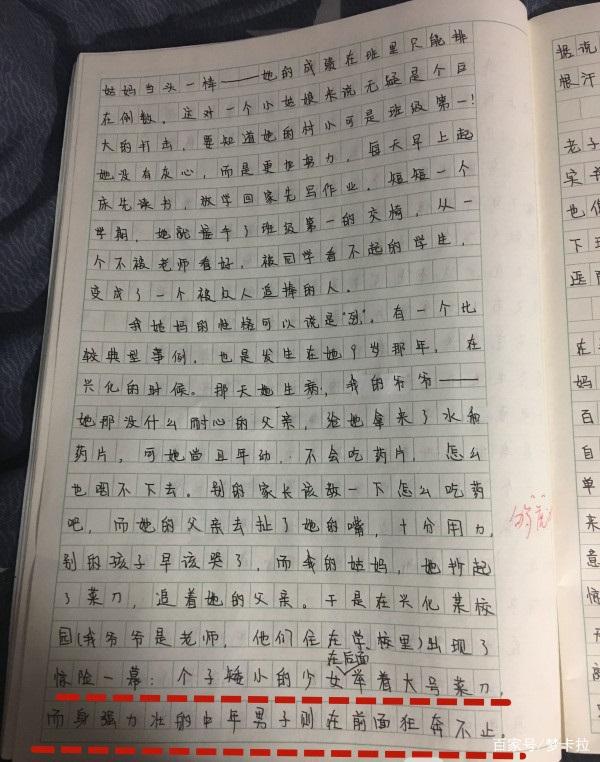 姑妈当头一棒——她的成绩在班里只能排
在倒数。这对一个小姑娘来说无疑是个巨
大的打击，要知道她的村小可是班级第一！
她没有灰心，而是更加努力，每天早上起
床先读书，放学回家先写作业，短短一个
学期，她就握手了班级第一的交椅，从一
个不被老师看好，被同学看不起的学生，
变成了一个被众人追捧的人。
我姑妈的性格可以说是"烈"。有一个比
较典型事例，也是发生在她9岁那年，在
兴化的时候。那天她生病，我的爷爷——
她那没什么耐心的父亲，给她拿来了水和
药片，可她尚且年幼，不会吃药片，怎么
也咽不下去。别的家长该教一下怎么吃药
吧，而她的父亲去扯了她的嘴，十分用力，
别的孩子早该哭了，而我的姑妈，她抄起
了菜刀，追着她的父亲。于是在兴化某校
园(我爷爷是老师，他们住在学校里)出现了
惊险一幕：个子矮小的少女在后面举着大号菜刀，
而身强力壮的中年男子则在前面狂奔不止。
据说
恨汗
老子
实书
也
下
在
妈
百
自
单
来
意
惊
百家号/梦卡拉